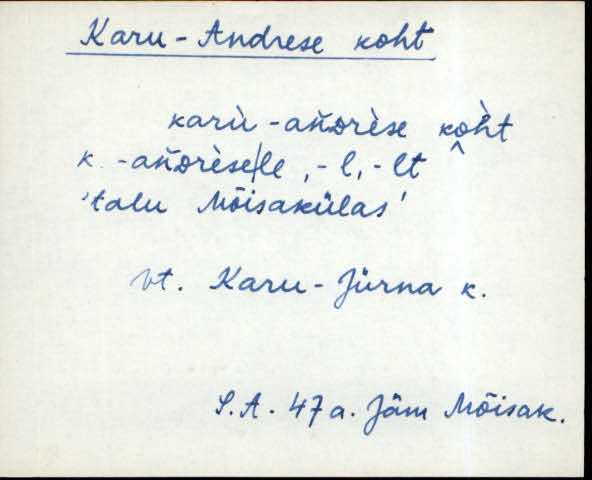 Karu-Andrese koht
karù-añdrèse kòht
k. -añdrèse|le, -l, -lt
'talu Mõisakülas'
vt. Karu-Jürna k.
S.A. 47a. Jäm Mõisak.